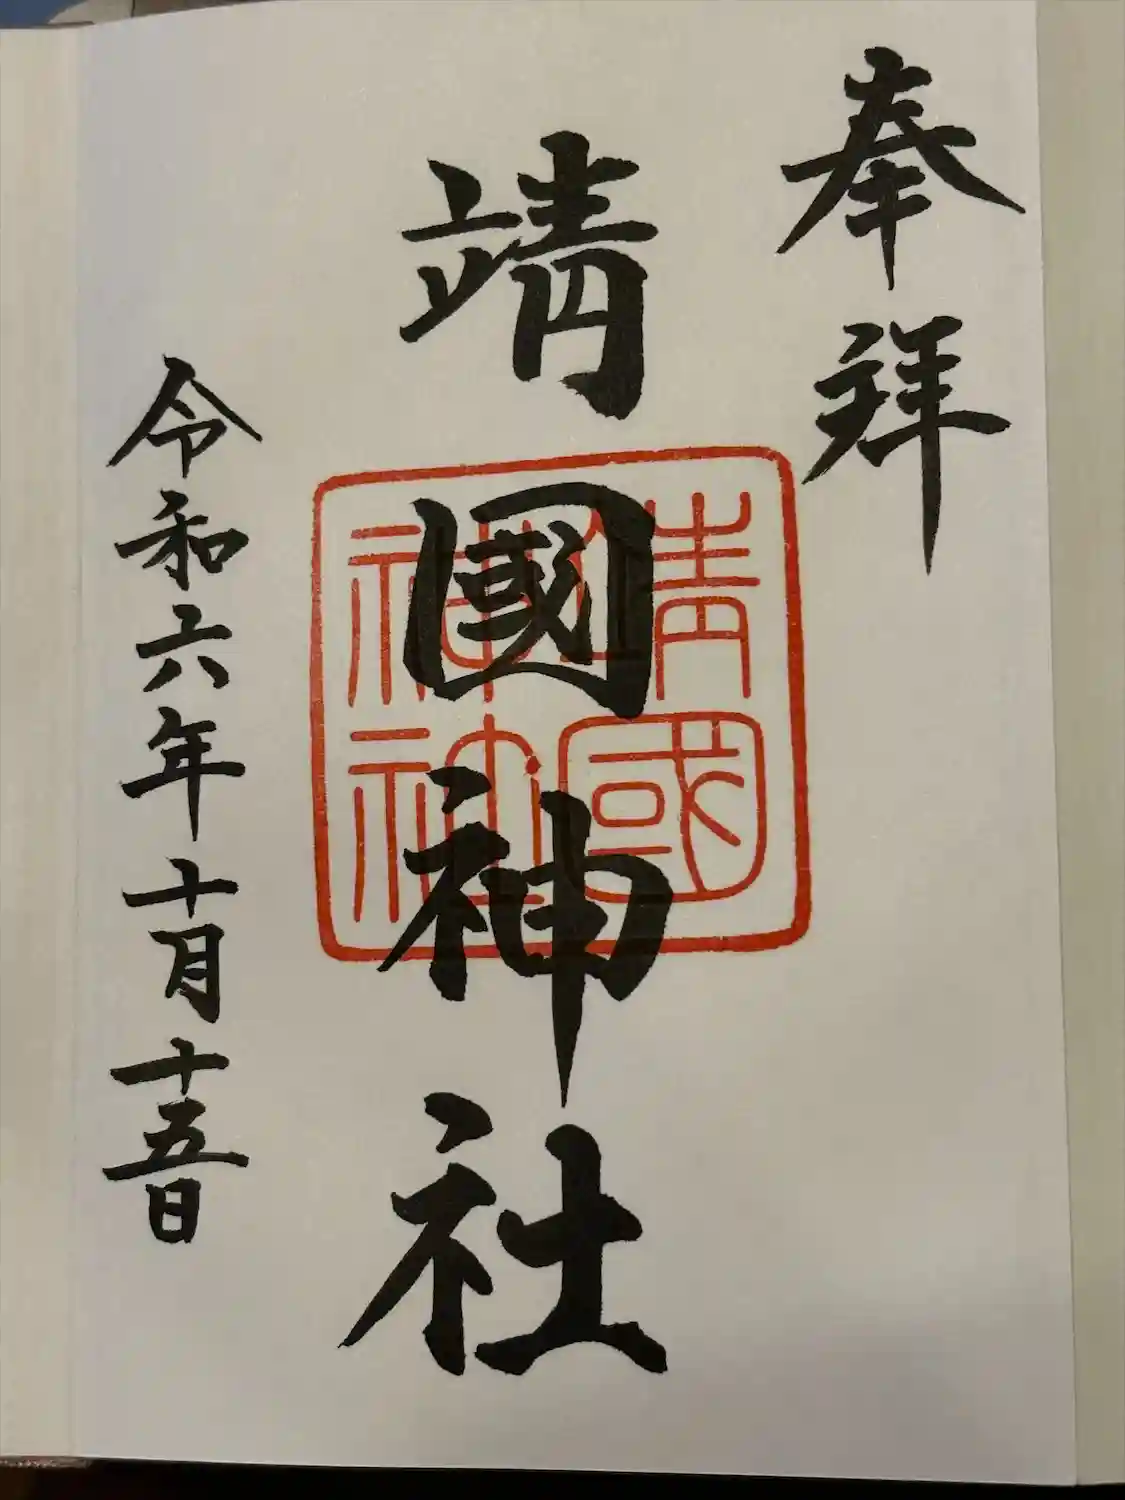 奉拝
靖國神社
靖國
神社
令和六年十月十五日